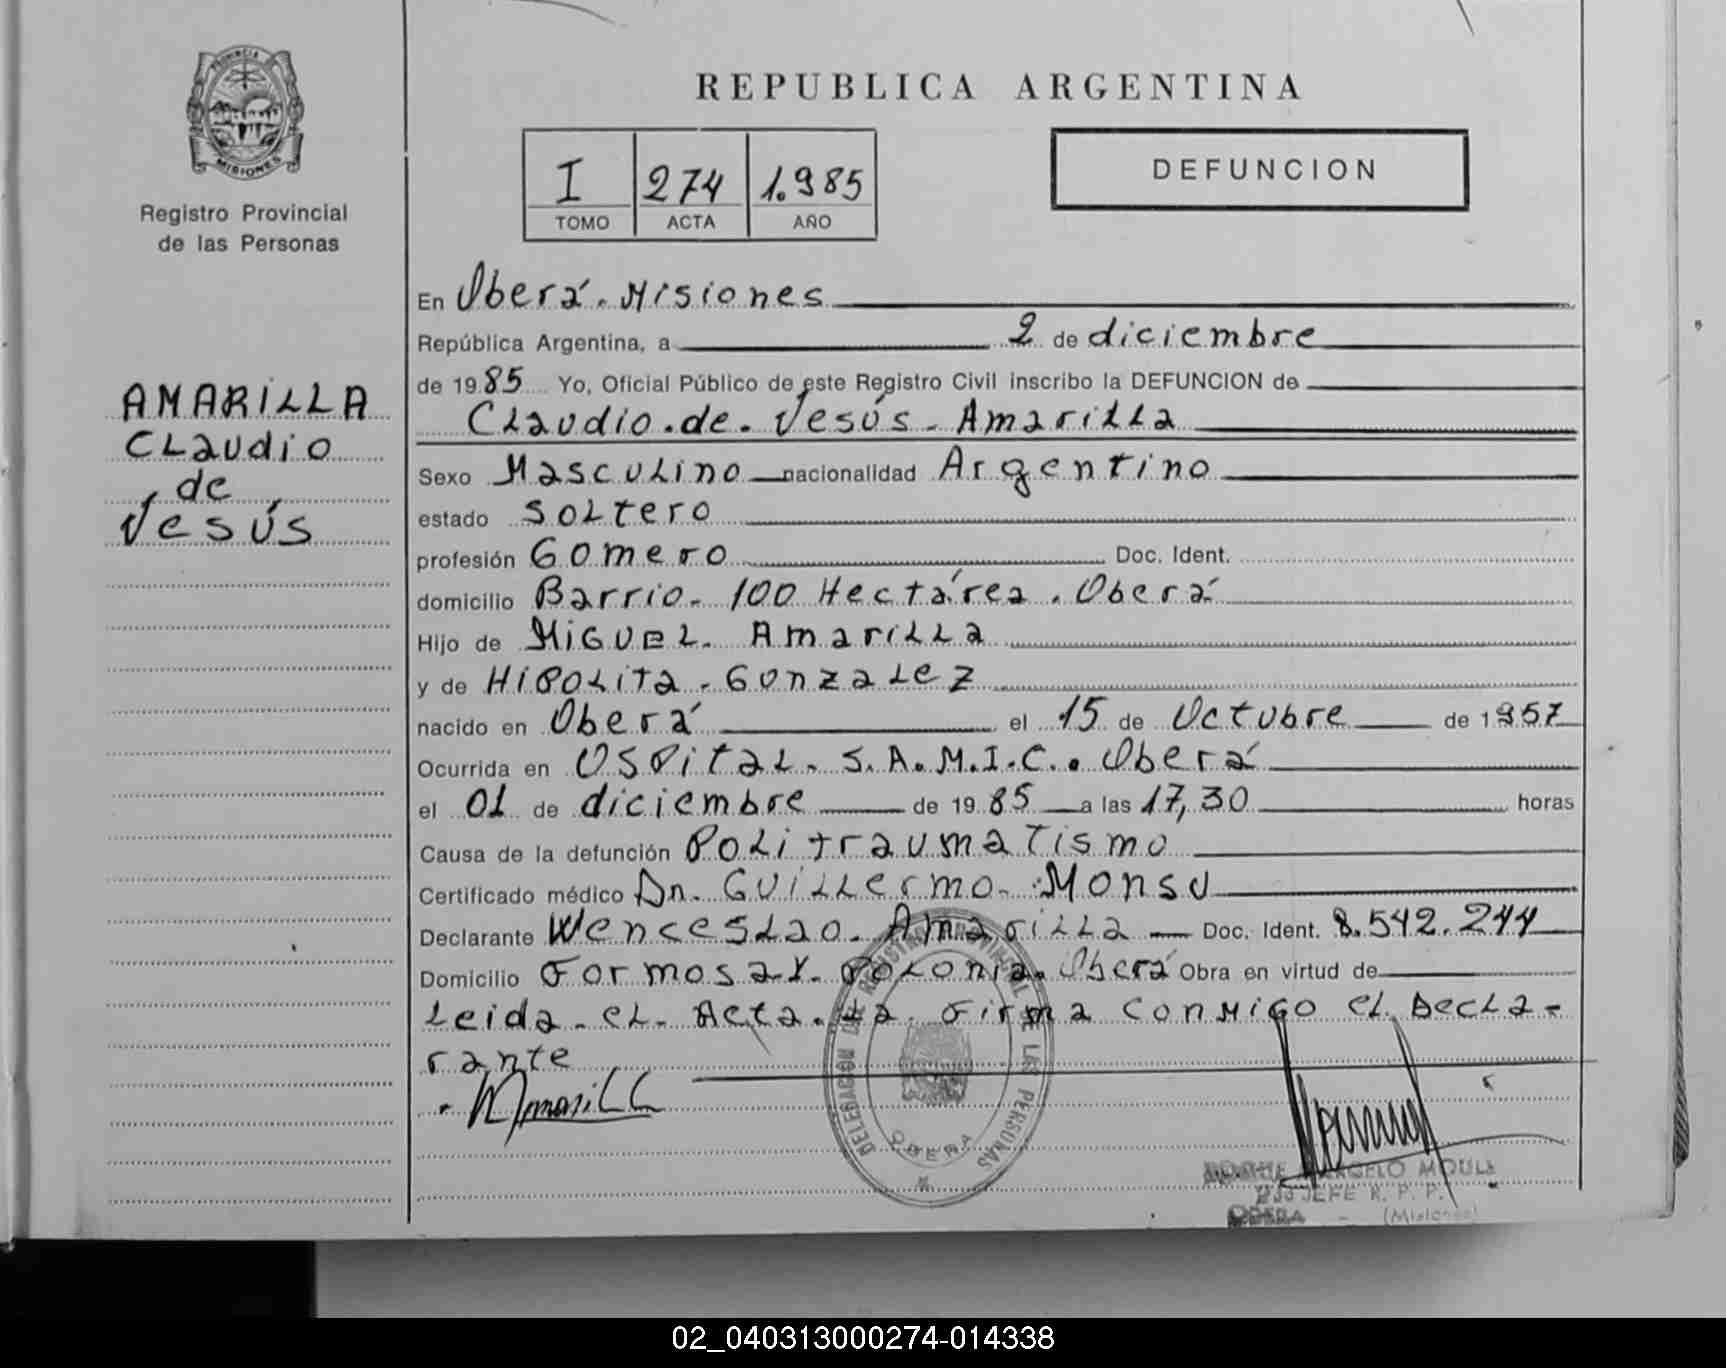 PROVINCIA
MISIONES
Registro Provincial
de las Personas
AMARILLA
CLaudio
de
Jesús
REPUBLICA ARGENTINA
I 274 1.985
TOMO ACTA AÑO
DEFUNCION
En Oberá. Misiones
República Argentina, a 2 de diciembre
de 1985 Yo, Oficial Público de este Registro Civil inscribo la DEFUNCION de
CLaudio.de.Jesús. AmariLLa
Sexo MascuLino nacionalidad Argentino
estado SoLtero
profesión Gomero Doc. Ident.
domicilio Barrio. 100 Hectárea. Oberá
Hijo de MiGUEL. AmariLLa
y de HiPoLiTa. GonzaLez
nacido en Oberá el 15 de Octubre de 1957
Ocurrida en OSPitaL. S.A.M.I.C.. Oberá
el 01 de diciembre de 1985 a las 17,30 horas
Causa de la defunción PoLitraumaTismo
Certificado médico Dr. GuiLLermo. Monsu
Declarante WencesLao. AmariLLa Doc. Ident. 8.542.244
Domicilio FormosaY. PoLonia. Oberá Obra en virtud de
Leida. eL. Acta. La. Firma conMiGo eL DecLa-
rante
DELEGACION DEL REGISTRO PROVINCIAL DE LAS PERSONAS
OBERA
ROQUE ANGELO
JEFE R. P. P.
OBERA - (Misiones)
02_040313000274-014338